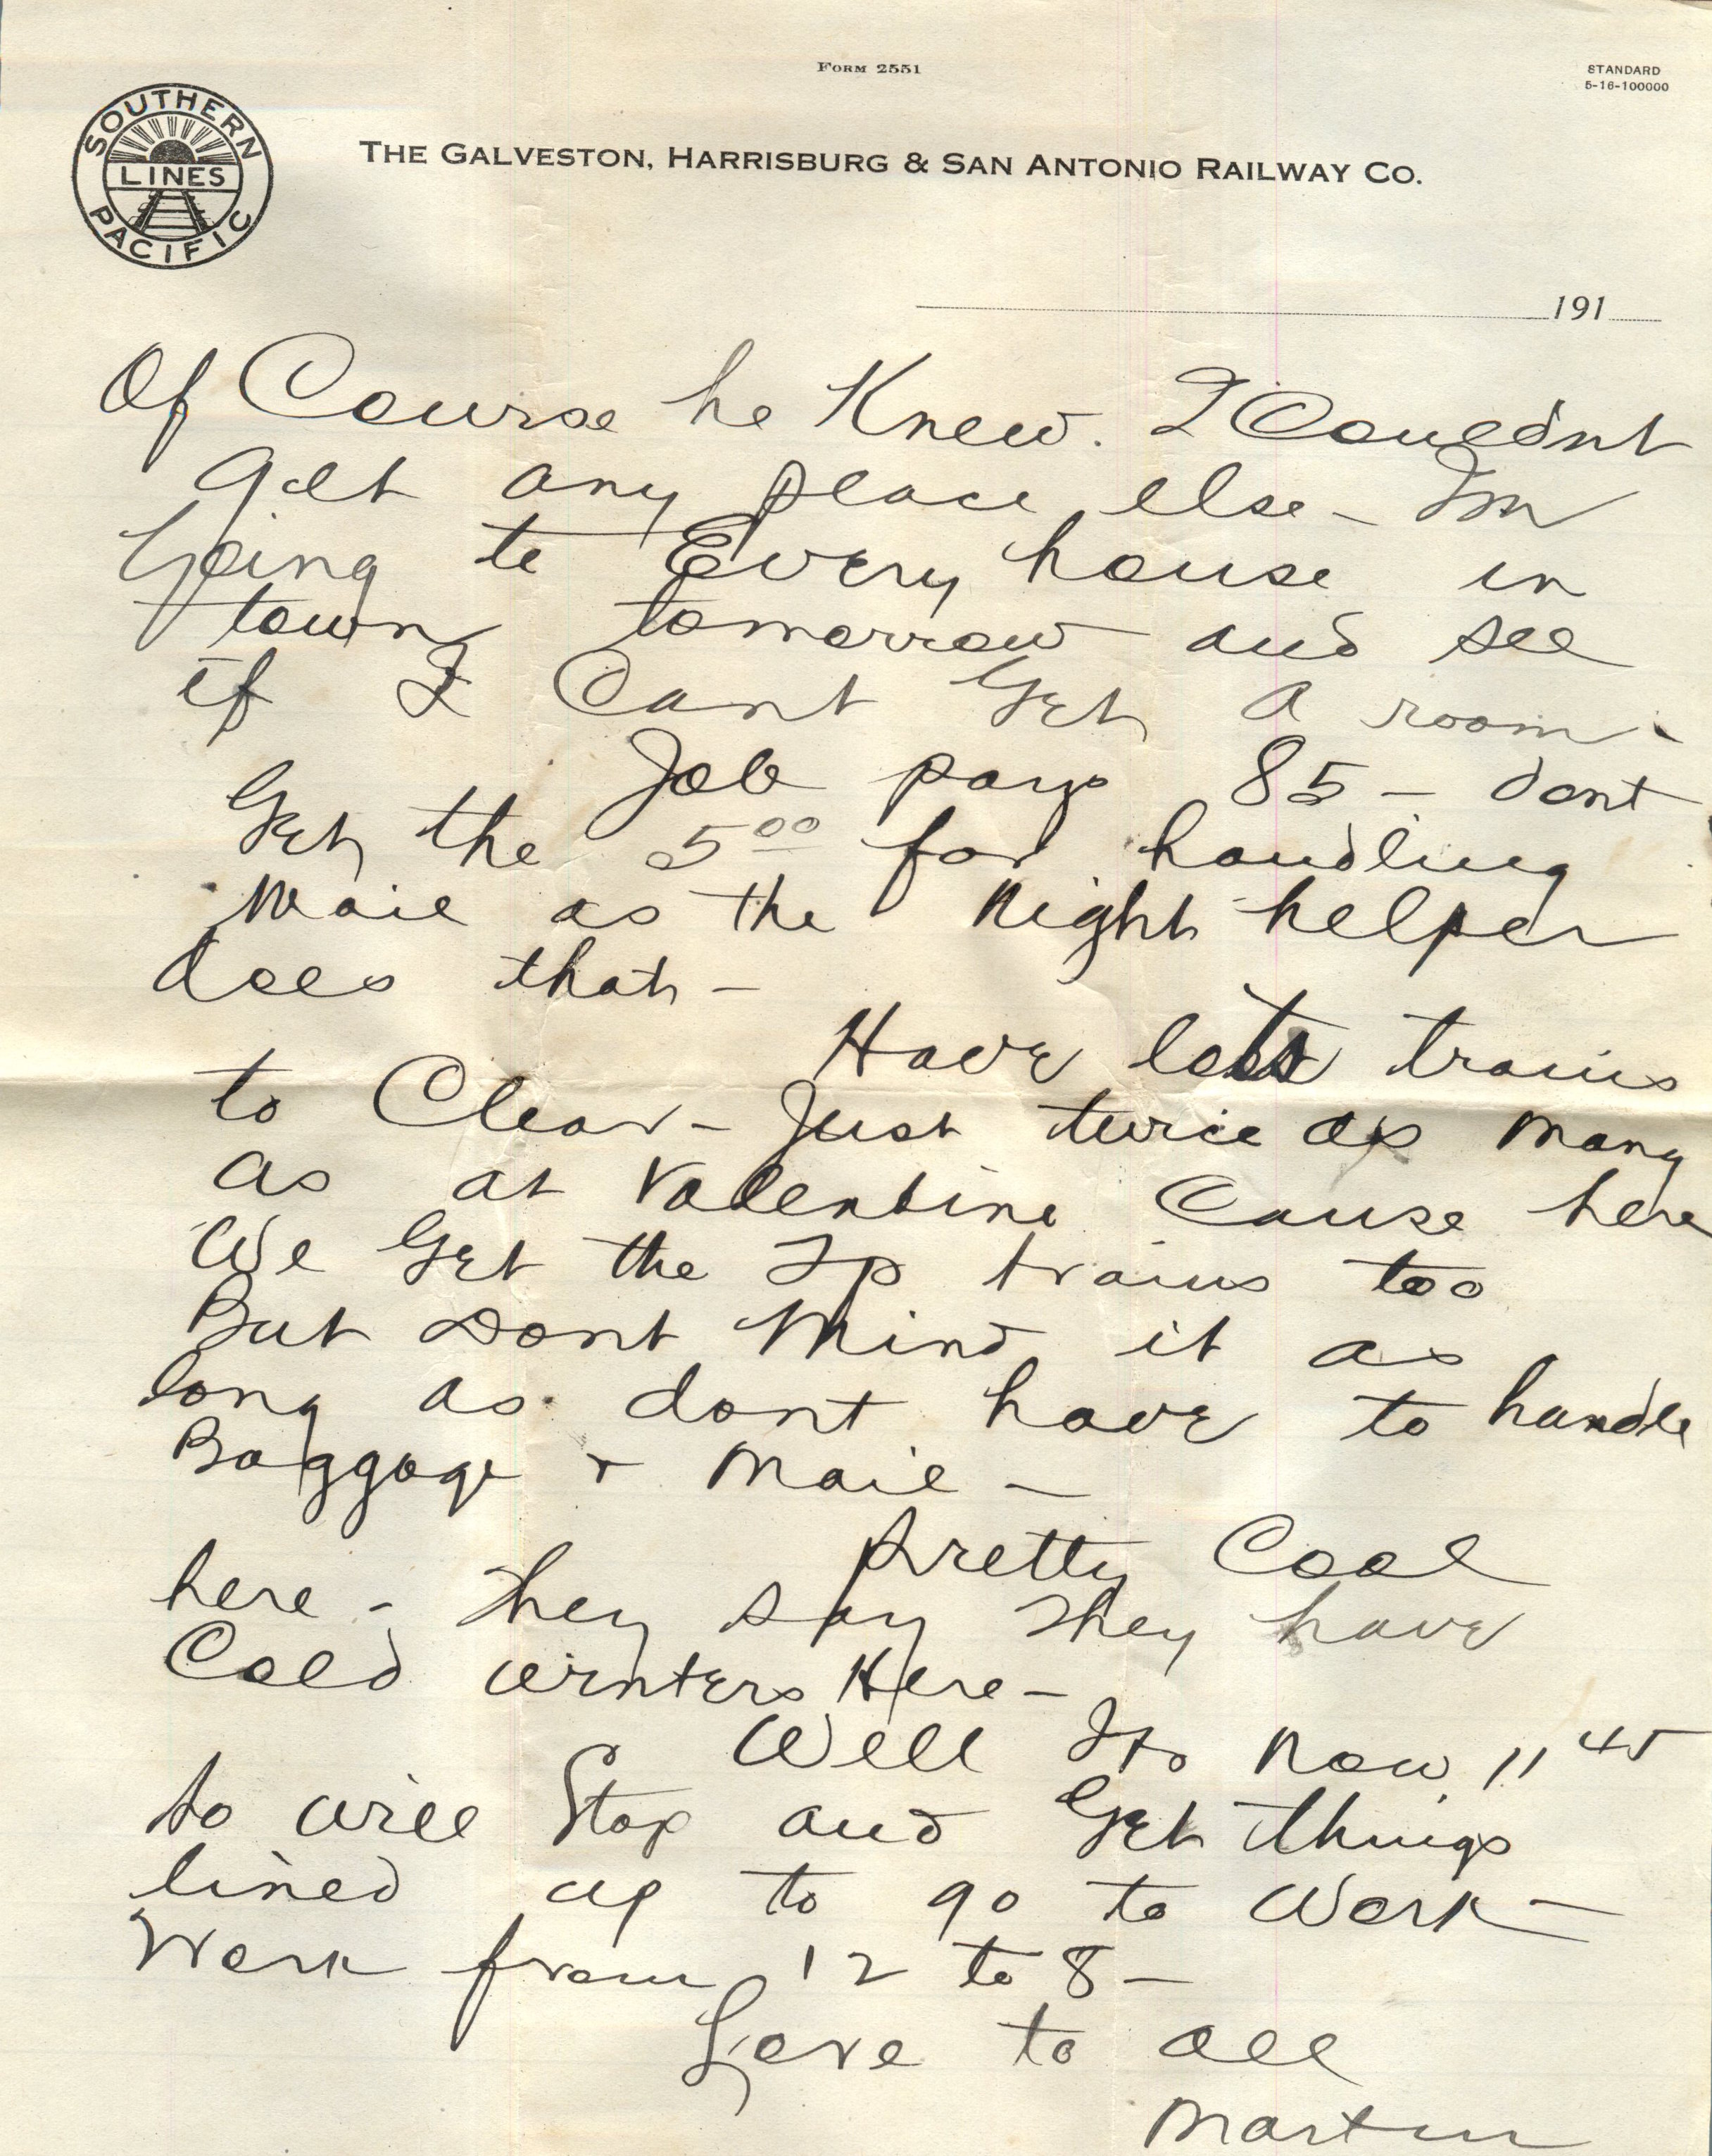 FORM 2551
STANDARD
5-16-100000
SOUTHERN
LINES
PACIFIC
THE GALVESTON, HARRISBURG & SAN ANTONIO RAILWAY CO.
191
Of Course he Knew. I Couldnt
get any place else - Im
Going to Every house in
town tomorrow and see
if I Cant Get a room -
Job pays 85 - dont
Get the 5 00 for handling
Mail as the Night helper
does that -
Have lots trains
to Clear - Just twice as Many
as at Valentine Cause here
We Get the Tp trains too
But Dont Mind it as
long as dont have to handle
Baggage + Mail -
Pretty Cool
here - They say They have
Cold winters Here -
Well Its Now 11 45
so will Stop and Get things
lined up to go to Work -
Work from 12 to 8 -
Love to all
Martin